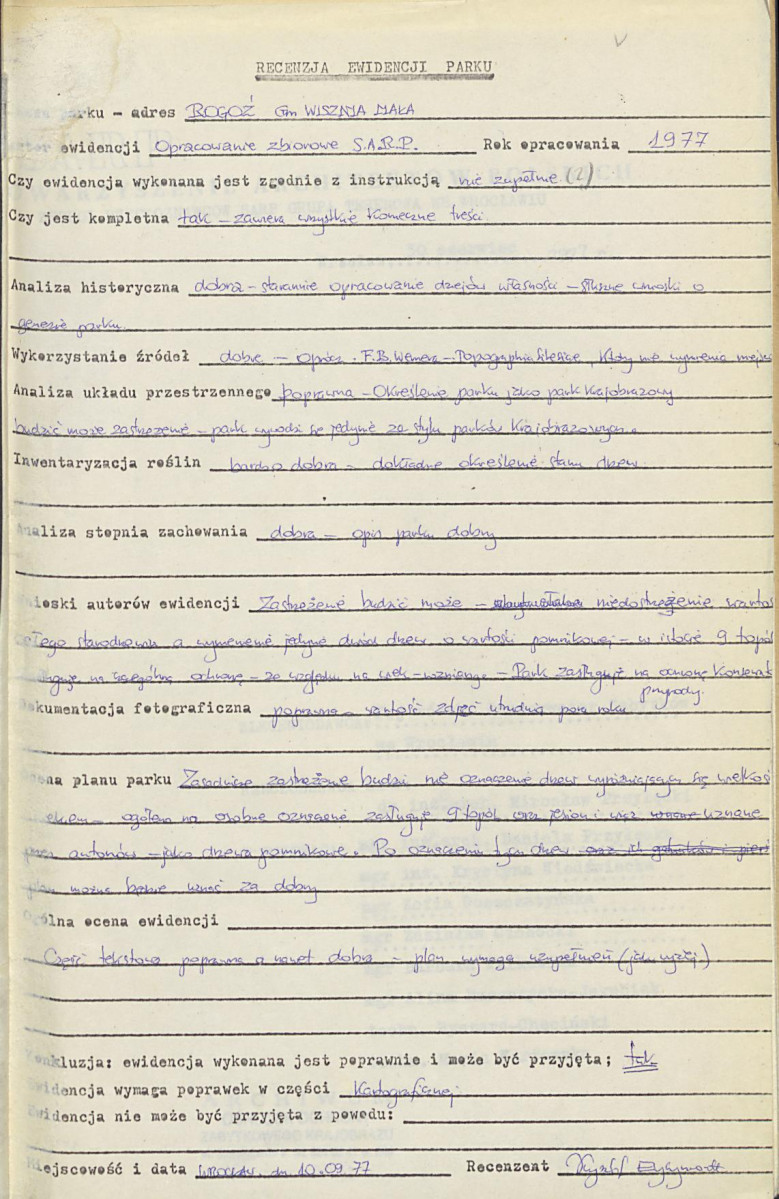 RECENZJA EWIDENCJI PARKU
parku - adres ROGOŻ Gm WISZNIA MAŁA
ewidencji Opracowanie zbiorowe S.A.R.P. Rok opracowania 1977
Czy ewidencja wykonana jest zgodnie z instrukcją nie zupełnie (2)
Czy jest kompletna tak - zawiera wszystkie konieczne treści
Analiza historyczna dobra - starannie opracowanie dziejów własności - słuszne wnioski o
genezie parku
Wykorzystanie źródeł dobre - oprócz F.B. Wernera - Topographia Silesiae, który nie wymienia miejsc
Analiza układu przestrzennego poprawna - Określenie parku jako park krajobrazowy
budzić może zastrzeżenie - park wywodzi się jedynie ze stylu parków krajobrazowych.
Inwentaryzacja roślin bardzo dobra - dokładne określenie stanu drzew
Analiza stopnia zachowania dobra - opis parku dobry
Wnioski autorów ewidencji Zastrzeżenie budzić może - niedostrzeżenie wartoś
całego starodrzewu a wymienienie jedynie dwóch drzew o wartości pomnikowej - w istocie 9 topól
na szczególną ochronę - ze względu na wiek - Park zasługuje na ochronę Konserwat
przyrody.
Dokumentacja fotograficzna poprawna - wartość zdjęć utrudnia pora roku
Ocena planu parku Zasadnicze zastrzeżenie budzi nie oznaczenie drzew wyróżniających się wielkoś
wiekiem - ogółem na osobne oznaczenie zasługuje 9 topól oraz jesion i wiąz uznane
przez autorów - jako drzewa pomnikowe. Po oznaczeniu tych drzew oraz ich
plan można będzie uznać za dobry
Ogólna ocena ewidencji
Część tekstowa poprawna a nawet dobra - plan wymaga uzupełnień (jak wyżej)
Konkluzja: ewidencja wykonana jest poprawnie i może być przyjęta; tak
Ewidencja wymaga poprawek w części Kartograficznej
Ewidencja nie może być przyjęta z powodu:
Miejscowość i data WROCŁAW, dn. 10.09.77 Recenzent